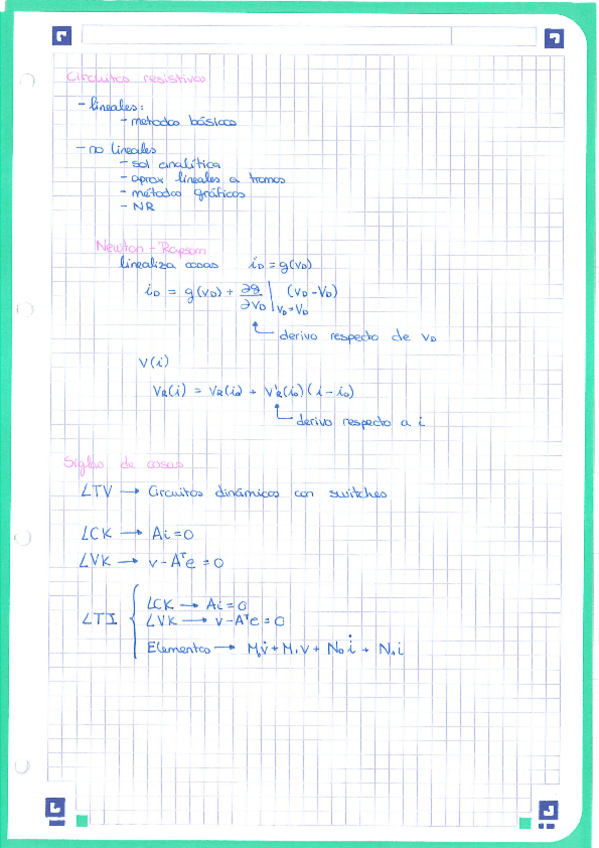 Circuitos resistivos
- lineales:
- metodos básicos
- no lineales
- sol analítica
- aprox lineales a tramos
- métodos gráficos
- NR
Newton - Rapson
linealiza cosas i_D = g(v_D)
i_D = g(V_D) + ∂g/∂v_D |_{v_D=V_D} (v_D - V_D)
derivo respecto de v_D
V(i)
V_R(i) = V_R(i_0) + V'_R(i_0)(i - i_0)
derivo respecto a i
Siglas de cosas
LTV → Circuitos dinámicos con switches
LCK → Ai = 0
LVK → v - A^T e = 0
LTI { LCK → Ai = 0
LVK → v - A^T e = 0
Elementos → M_0 v̇ + M_1 v + N_0 i̇ + N_1 i